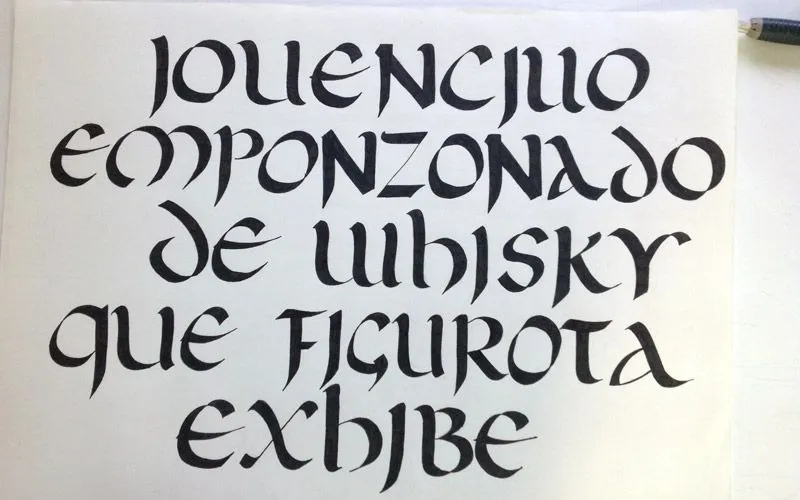 JOVENCILLO
EMPONZONADO
DE WHISKY
QUE FIGUROTA
EXHIBE